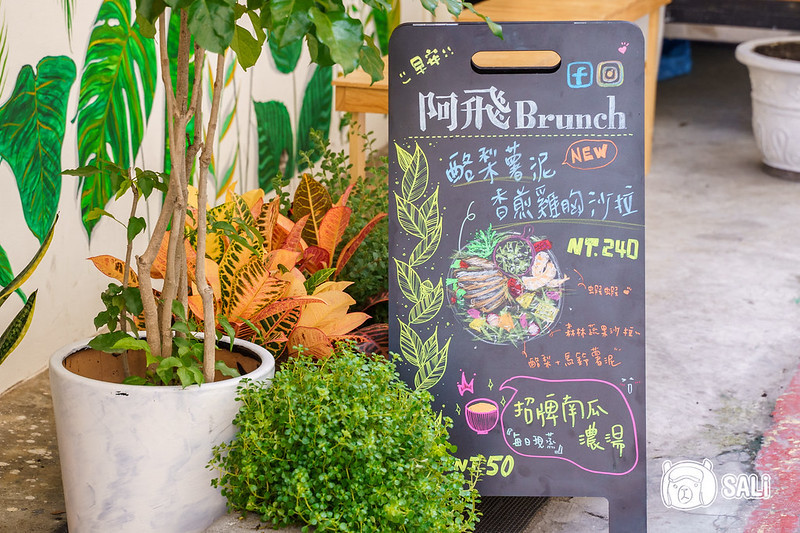 早安
阿飛Brunch
酪梨薯泥 NEW
香煎雞胸沙拉
NT.240
蝦蝦
森林蔬果沙拉
酪梨+馬鈴薯泥
招牌南瓜
『每日現蒸』 濃湯
NT.50
SALI